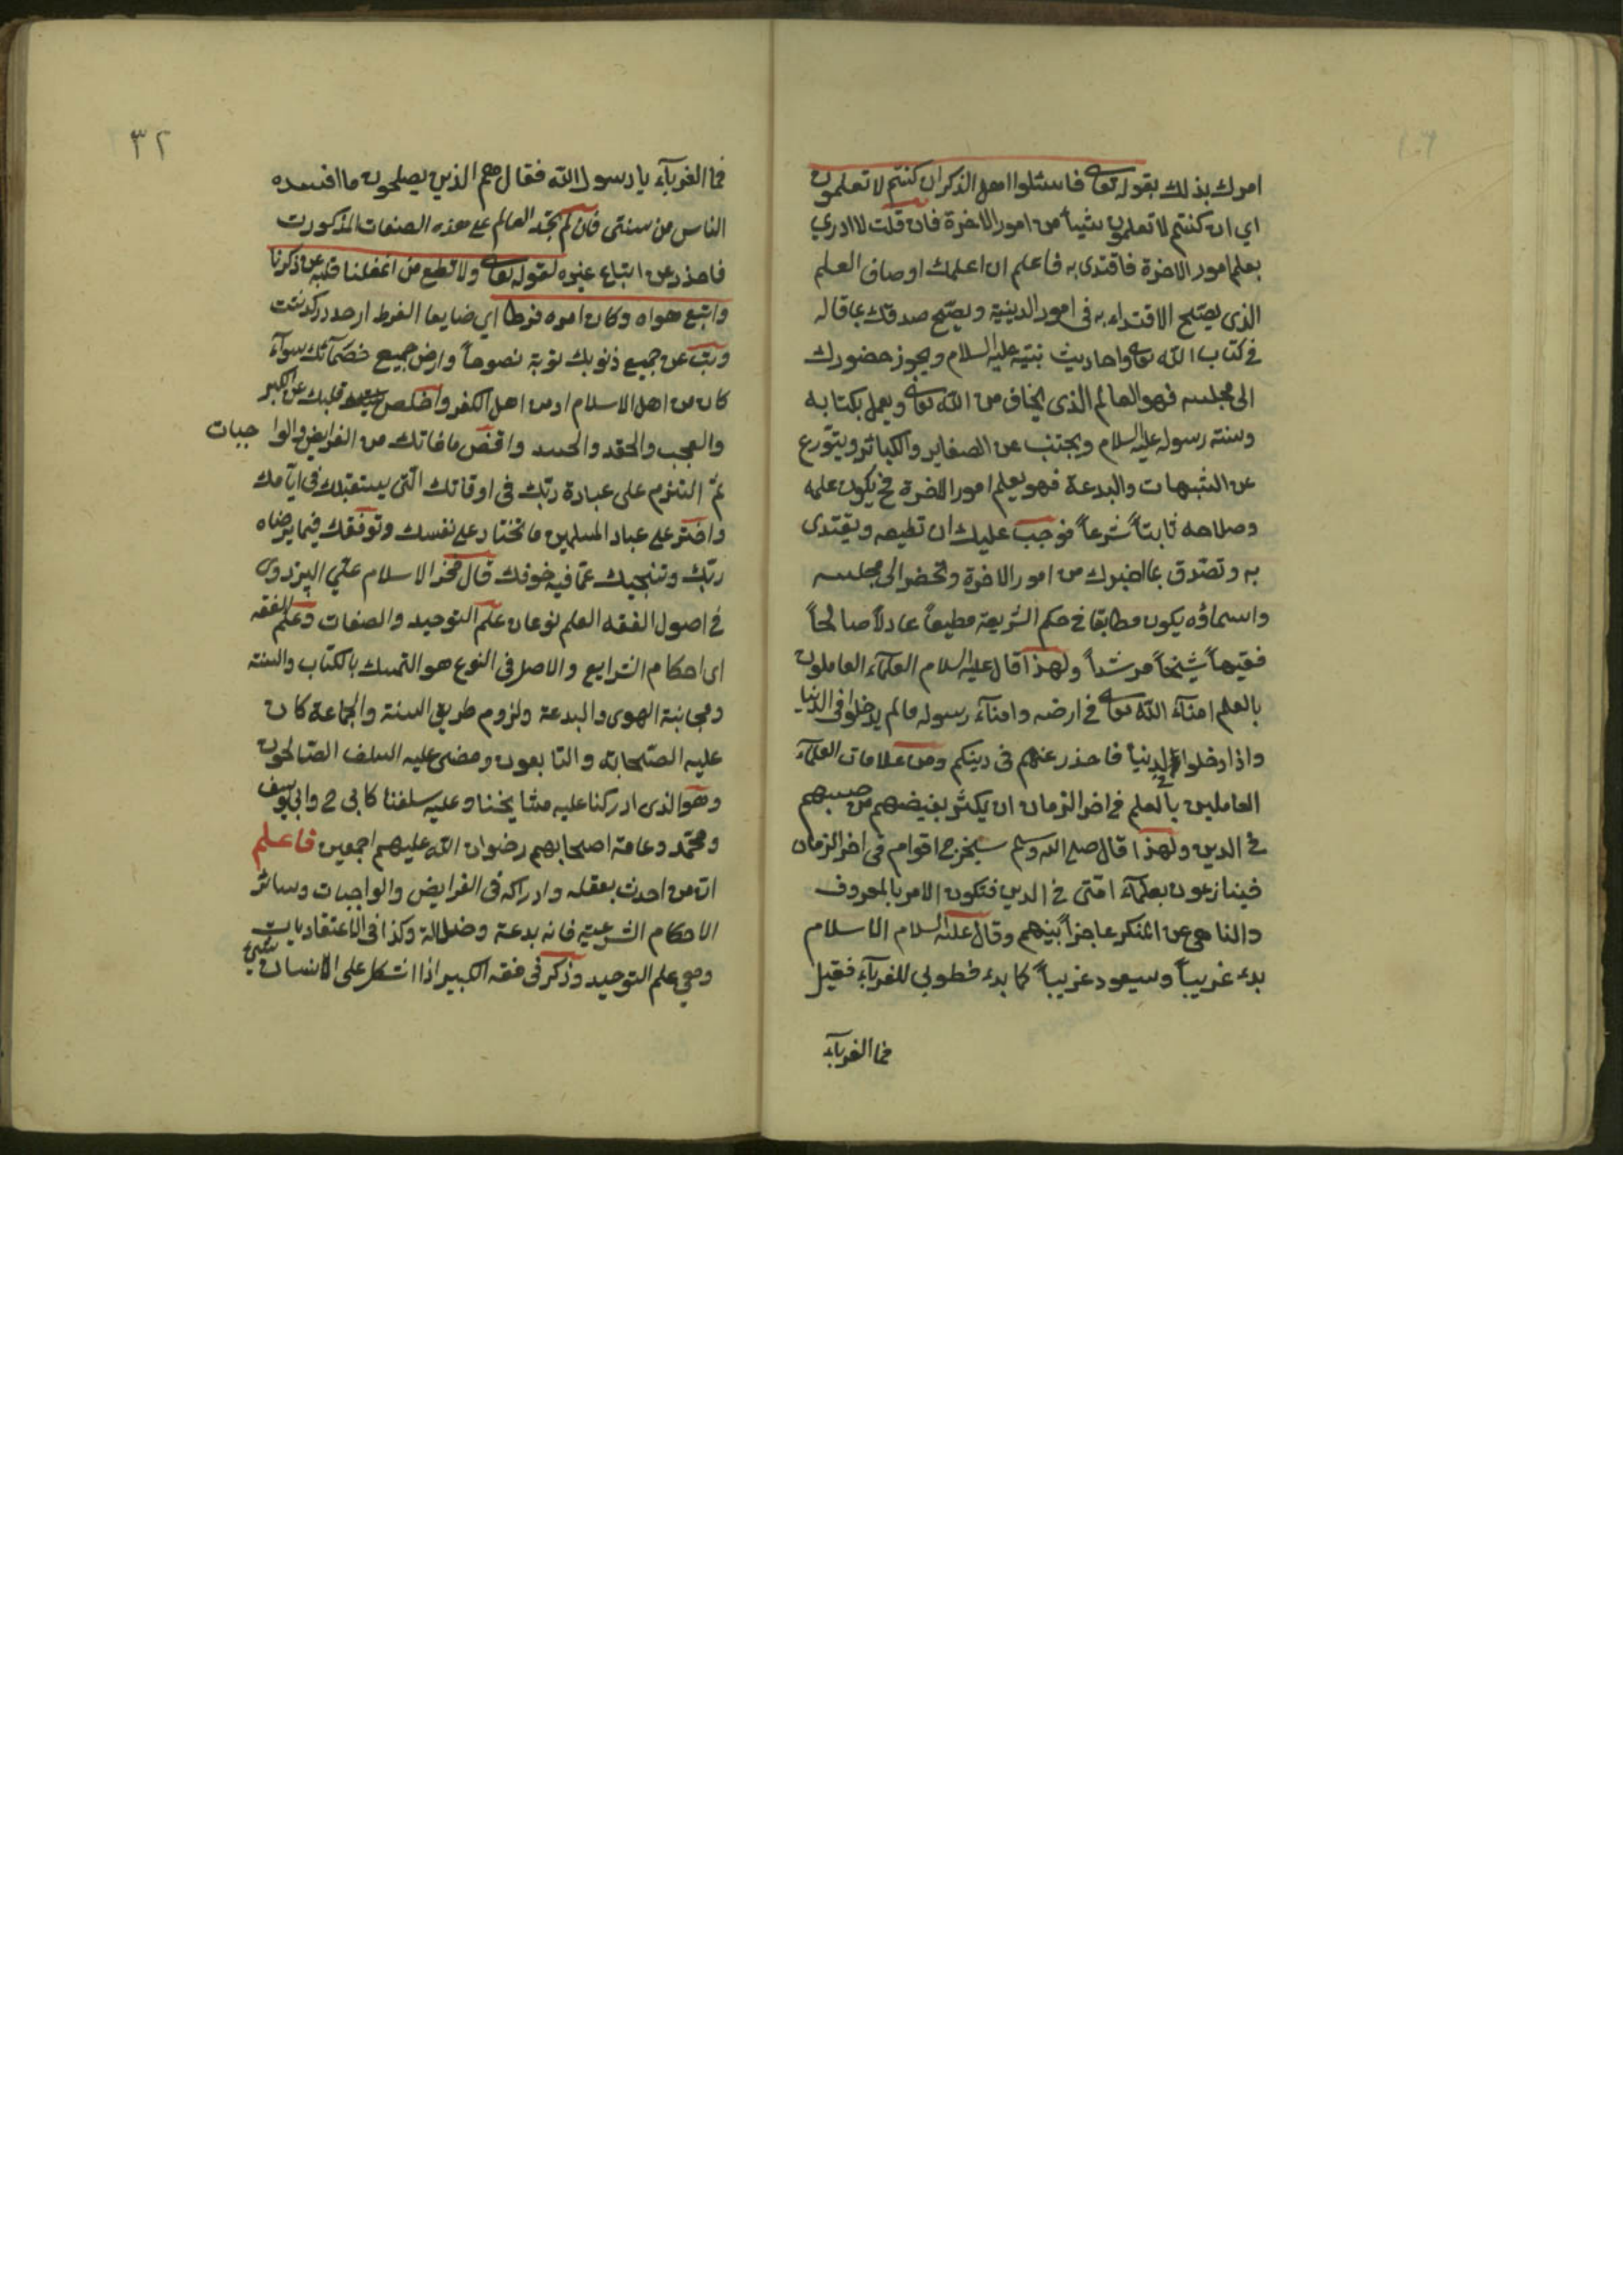 امرك بذلك بقوله تعالى فاسئلوا اهل الذكر ان كنتم لا تعلمون
اي ان كنتم لا تعلمون شيئاً من امور الاخرة فان قلت لا ادري
بعلم امور الاخرة فاقتدى به فاعلم ان اعلمك اوصاف العلم
الذى يصح الاقتداء به فى امور الدينية ويصح صدقك بما قاله
فى كتاب الله تعالى واحاديث نبيه عليه السلام ويجوز حضورك
الى مجلسه فهو العالم الذى يخاف من الله تعالى ويعمل بكتابه
وسنة رسوله عليه السلام ويجتنب عن الصغاير والكبائر ويتورع
عن الشبهات والبدعة فهو يعلم امور الاخرة فح يكون علمه
وصلاحه ثابتاً شرعاً فوجب عليك ان تطيعه ويقتدى
به وتصدق بما اخبرك من امور الاخرة وتحضر الى مجلسه
واسماؤه يكون مطابقا فى حكم الشريعة مطيعاً عادلاً صالحاً
فقيهاً شيخاً مرشداً ولهذا قال عليه السلام العلمآء العاملون
بالعلم امنآء الله تعالى فى ارضه وامنآء رسوله مالم يدخلوا فى الدنيا
واذا دخلوا فى الدنيا فاحذر عنهم فى دينكم ومن علامات العلمآء
العاملين بالعلم فى اخر الزمان ان يكثر بغيضهم من حبيبهم
فى الدين ولهذا قال صلى الله وسلم سيخرج اقوام فى اخر الزمان
فينازعون بعلمآء امتى فى الدين فتكون الامر بالمعروف
والناهى عن المنكر عاجزاً بينهم وقال عليه السلام الاسلام
بدء غريباً وسيعود غريباً كما بدء فطوبى للغربآء فقيل
فما الغربآء
٣٢
فما الغربآء يا رسول الله فقال هم الذين يصلحون ما افسده
الناس من سنتى فان لم تجد العالم على هذه الصفات المذكورت
فاحذر عن اتباع غيره لقوله تعالى ولا تطع من اغفلنا قلبه عن ذكرنا
واتبع هواه وكان امره فرطا اي ضايعا الفرط ارحد در كذشت
وتب عن جميع ذنوبك توبة نصوحاً وارض جميع خصمآئك سوآء
كان من اهل الاسلام او من اهل الكفر واخلص قلبك عن الكبر
والعجب والحقد والحسد واقض ما فاتك من الفرايض والواجبات
ثم التزم على عبادة ربك فى اوقاتك التى يستقبلك فى ايامك
واختر على عباد المسلمين ما تختار على نفسك وتوفقك فيما يرضاه
ربك وتنجيك عما فيه خوفك قال فخر الاسلام على البزدوى
فى اصول الفقه العلم نوعان علم التوحيد والصفات وعلم الفقه
اى احكام الشرايع والاصل فى النوع هو التمسك بالكتاب والسنة
ومجانبة الهوى والبدعة ولزوم طريق السنة والجماعة كان
عليه الصحابة والتابعون ومضى عليه السلف الصالحون
وهو الذى ادركنا عليه مشايخنا وعليه سلفنا كابى ح وابى يوسف
ومحمد وعامة اصحابهم رضوان الله عليهم اجمعين فاعلم
ان من احدث بعقله وادراكه فى الفرايض والواجبات وسائر
الاحكام الشرعية فانه بدعة وضلالة وكذا فى الاعتقاديات
وهى علم التوحيد وذكر فى فقه الكبير اذا اشكل على الانسان شيئ